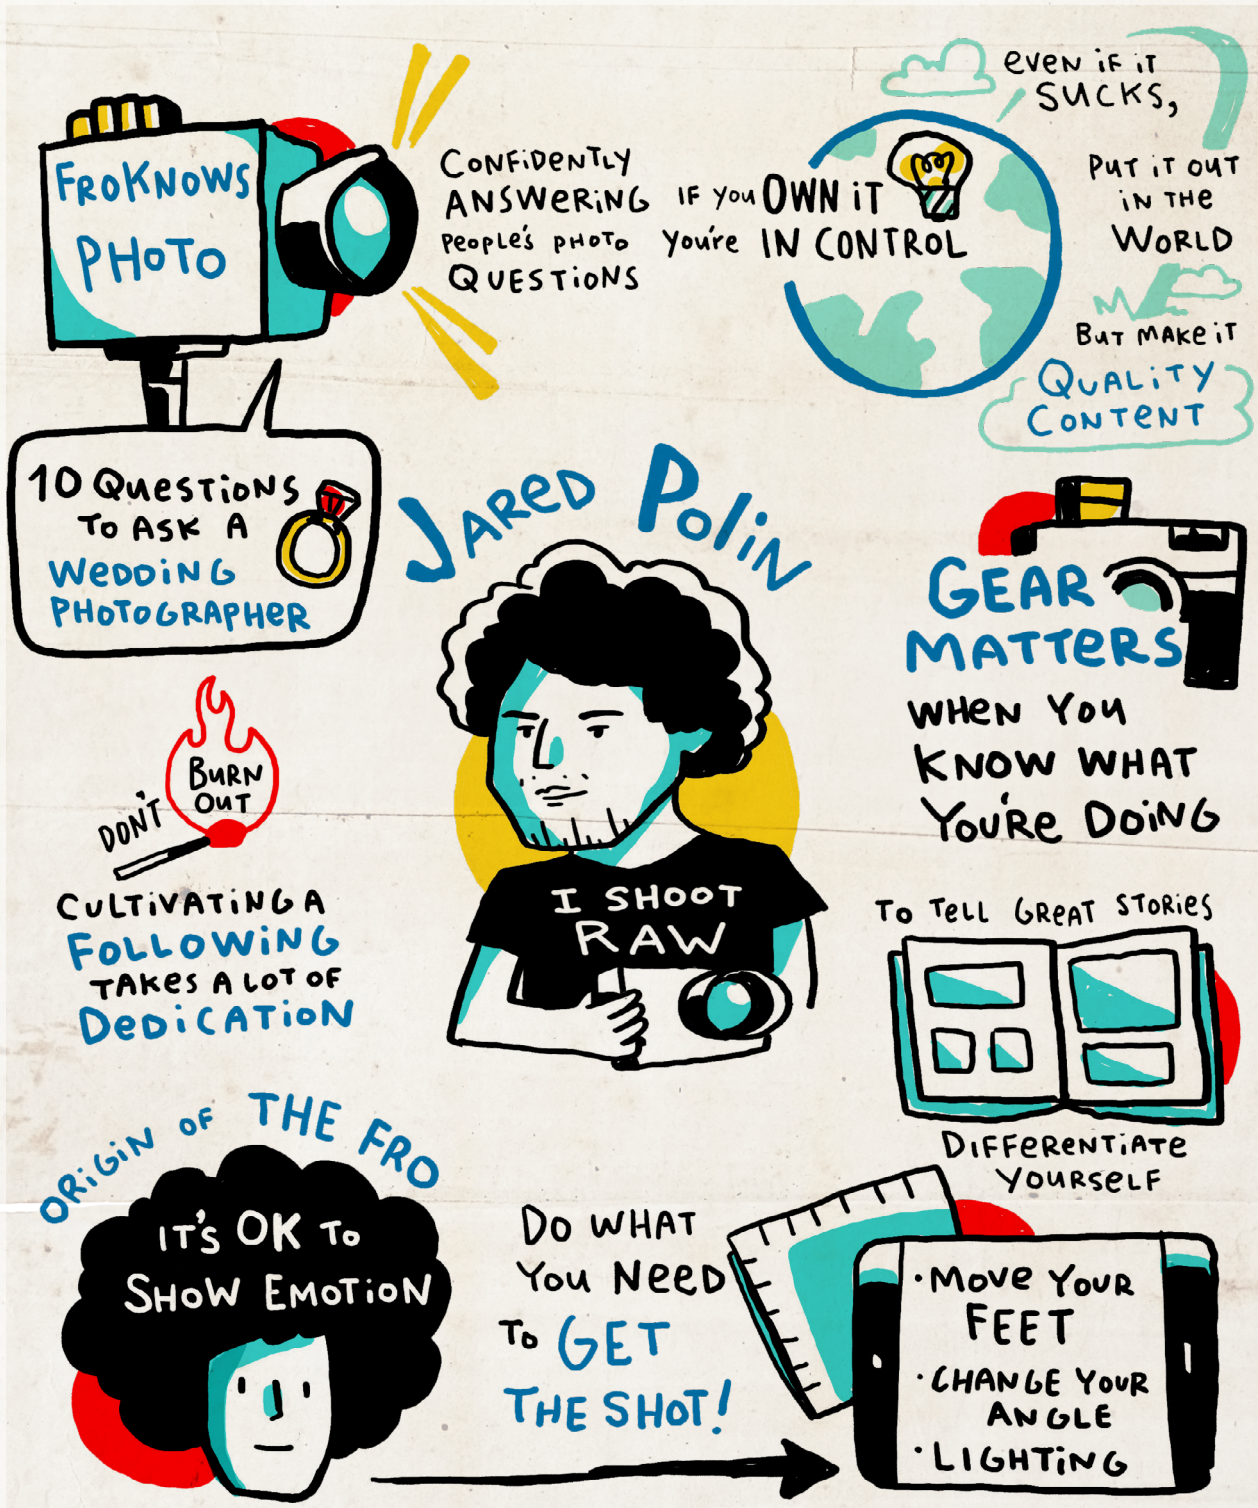 FROKNOWS
PHOTO
CONFIDENTLY
ANSWERING
PEOPLE'S PHOTO
QUESTIONS
IF YOU OWN IT
YOU'RE IN CONTROL
EVEN IF IT
SUCKS,
PUT IT OUT
IN THE
WORLD
BUT MAKE IT
QUALITY
CONTENT
10 QUESTIONS
TO ASK A
WEDDING
PHOTOGRAPHER
JARED POLIN
I SHOOT
RAW
GEAR
MATTERS
WHEN YOU
KNOW WHAT
YOU'RE DOING
DON'T
BURN
OUT
CULTIVATING A
FOLLOWING
TAKES A LOT OF
DEDICATION
TO TELL GREAT STORIES
DIFFERENTIATE
YOURSELF
ORIGIN OF THE FRO
IT'S OK TO
SHOW EMOTION
DO WHAT
YOU NEED
TO GET
THE SHOT!
• MOVE YOUR
FEET
• CHANGE YOUR
ANGLE
• LIGHTING